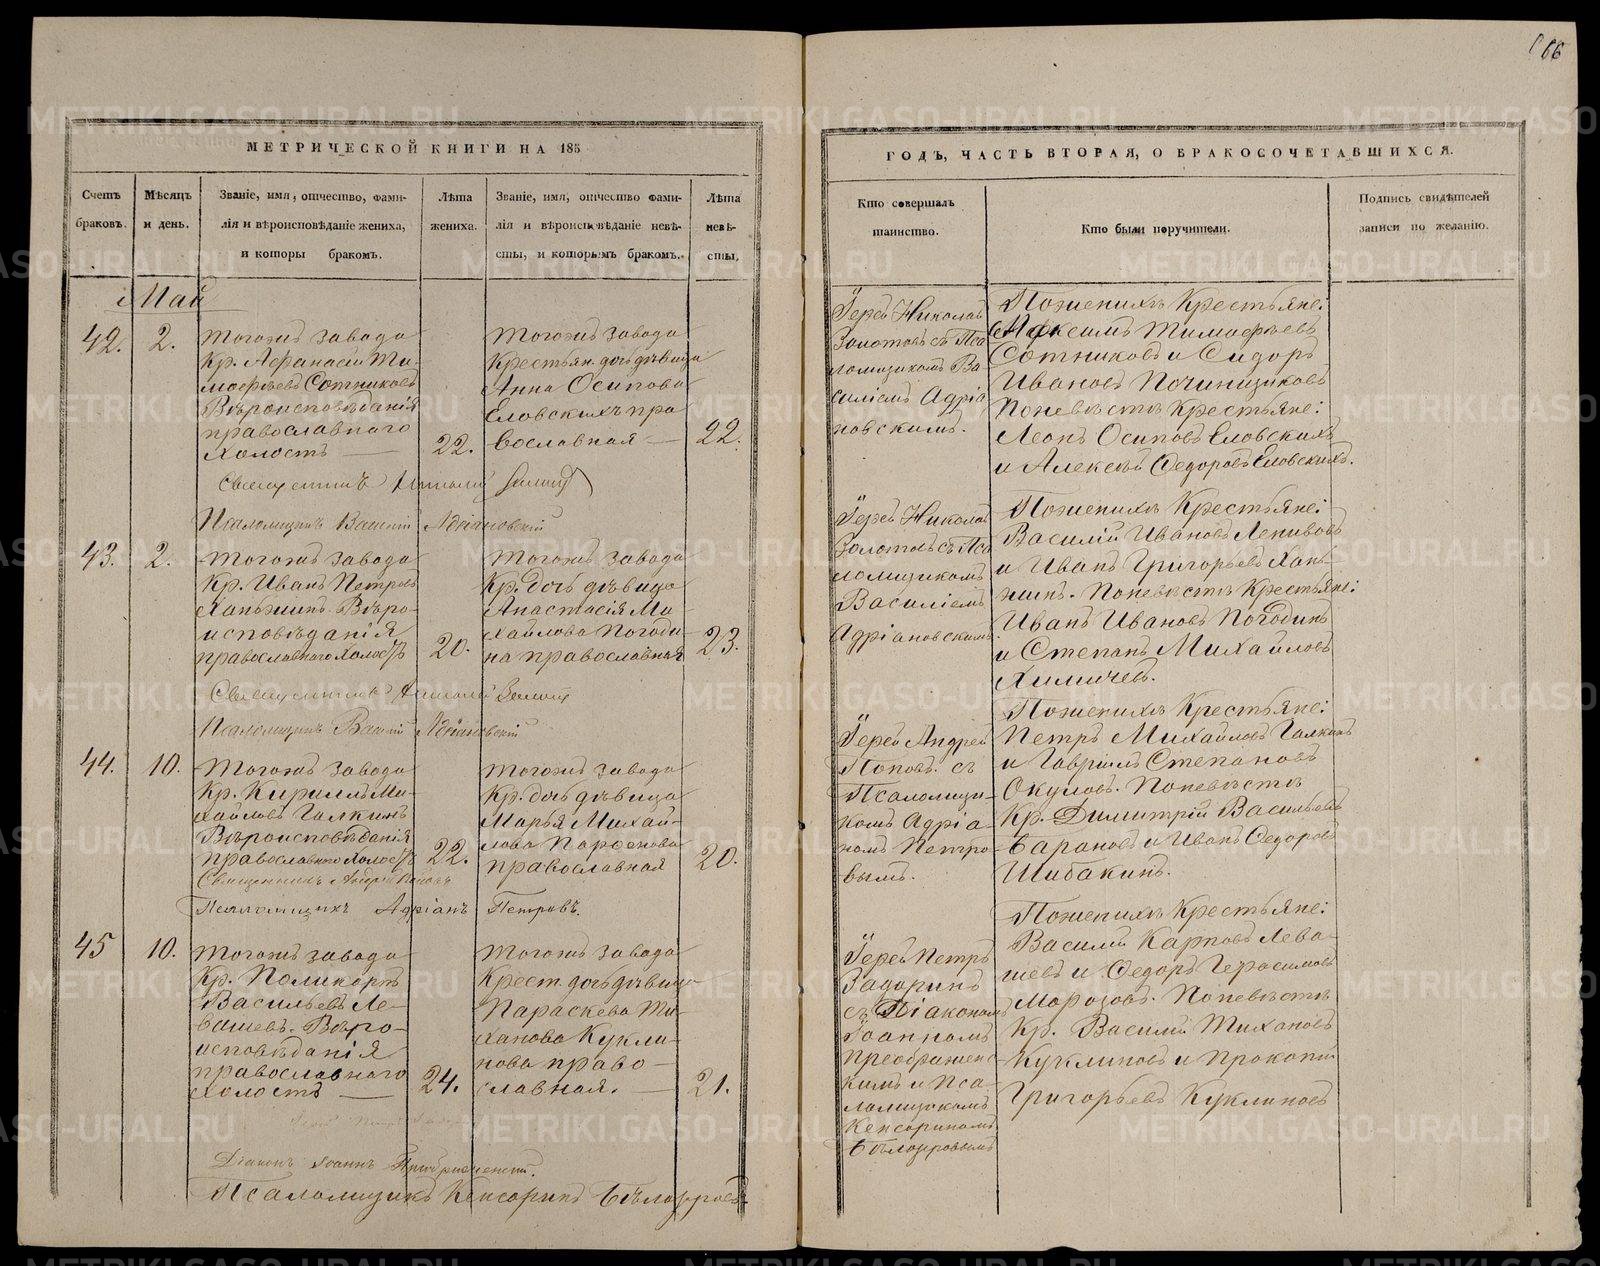 66
МЕТРИЧЕСКОЙ КНИГИ НА 185
Счетъ браковъ.
Мѣсяцъ и день.
Званіе, имя, отчество, фами-
лія и вѣроисповѣданіе жениха,
и которы бракомъ.
Лѣта
жениха.
Званіе, имя, отчество фами-
лія и вѣроисповѣданіе невѣ-
сты, и которымъ бракомъ.
Лѣта
невѣ-
сты.
Май
42.
2.
Тогожъ завода
Кр. Афанасій Ти-
мофѣевъ Сотниковъ
Вѣроисповѣданія
православнаго
Холостъ
22.
Тогожъ завода
Крестьян. дочь дѣвица
Анна Осипова
Еловскихъ пра
вославная
22.
Священникъ Николай
Псаломщикъ Василій Адріановскій
43.
2.
Тогожъ завода
Кр. Иванъ Петровъ
Ханжинъ. Вѣро-
исповѣданія
православнаго Холостъ
20.
Тогожъ завода
Кр. дочь дѣвица
Анастасія Ми-
хайлова Погоди-
на православная
23.
Священникъ Николай
Псаломщикъ Василій Адріановскій
44.
10.
Тогожъ завода
Кр. Кириллъ Ми-
хайловъ Галкинъ
Вѣроисповѣданія
православнаго Холостъ
22.
Тогожъ завода
Кр. дочь дѣвица
Марья Михай-
лова Парфенова
православная
20.
Священникъ Андрей Поповъ
Псаломщикъ Адріанъ Петровъ.
45
10.
Тогожъ завода
Кр. Поликарпъ
Васильевъ Ле-
вашевъ. Вѣро-
исповѣданія
православнаго
Холостъ
24.
Тогожъ завода
Крест. дочь дѣвица
Параскева Ти-
ханова Кукли-
нова право-
славная.
21.
Діаконъ Іоаннъ
Псаломщикъ Кенсоринъ Бѣлозеровъ
ГОДЪ, ЧАСТЬ ВТОРАЯ, О БРАКОСОЧЕТАВШИХСЯ.
Кто совершалъ
таинство.
Кто были поручители.
Подпись свидѣтелей
записи по желанію.
Іерей Николай
Золотовъ съ Пса
ломщикомъ Ва
силіемъ Адріа
новскимъ.
Пожениху Крестьяне:
Максимъ Тимофѣевъ
Сотниковъ и Сидоръ
Ивановъ Починщиковъ
Поневѣстѣ Крестьяне:
Леонъ Осиповъ Еловскихъ
и Алексѣй Федоровъ Еловскихъ.
Іерей Николай
Золотовъ съ Пса
ломщикомъ
Василіемъ
Адріановскимъ.
Пожениху Крестьяне:
Василій Ивановъ Ленивовъ
и Иванъ Григорьевъ Хан-
жинъ. Поневѣстѣ Крестьяне:
Иванъ Ивановъ Погодинъ
и Степанъ Михайловъ
Химичевъ.
Іерей Андрей
Поповъ съ
Псаломщи-
комъ Адріа-
номъ Петро-
вымъ.
Пожениху Крестьяне:
Петръ Михайловъ Галкинъ
и Гавріилъ Степановъ
Окуловъ. Поневѣстѣ
Кр. Димитрій Васильевъ
Барановъ и Иванъ Федоровъ
Шибакинъ.
Іерей Петръ
Задоринъ
съ Діакономъ
Іоанномъ
Преображенс-
кимъ и Пса-
ломщикомъ
Кенсориномъ
Бѣлозеровымъ
Пожениху Крестьяне:
Василій Карповъ Лева-
шевъ и Федоръ Герасимовъ
Морозовъ. Поневѣстѣ
Кр. Василій Тихановъ
Куклиновъ и Прокопій
Григорьевъ Куклиновъ
METRIKI.GASO-URAL.RU